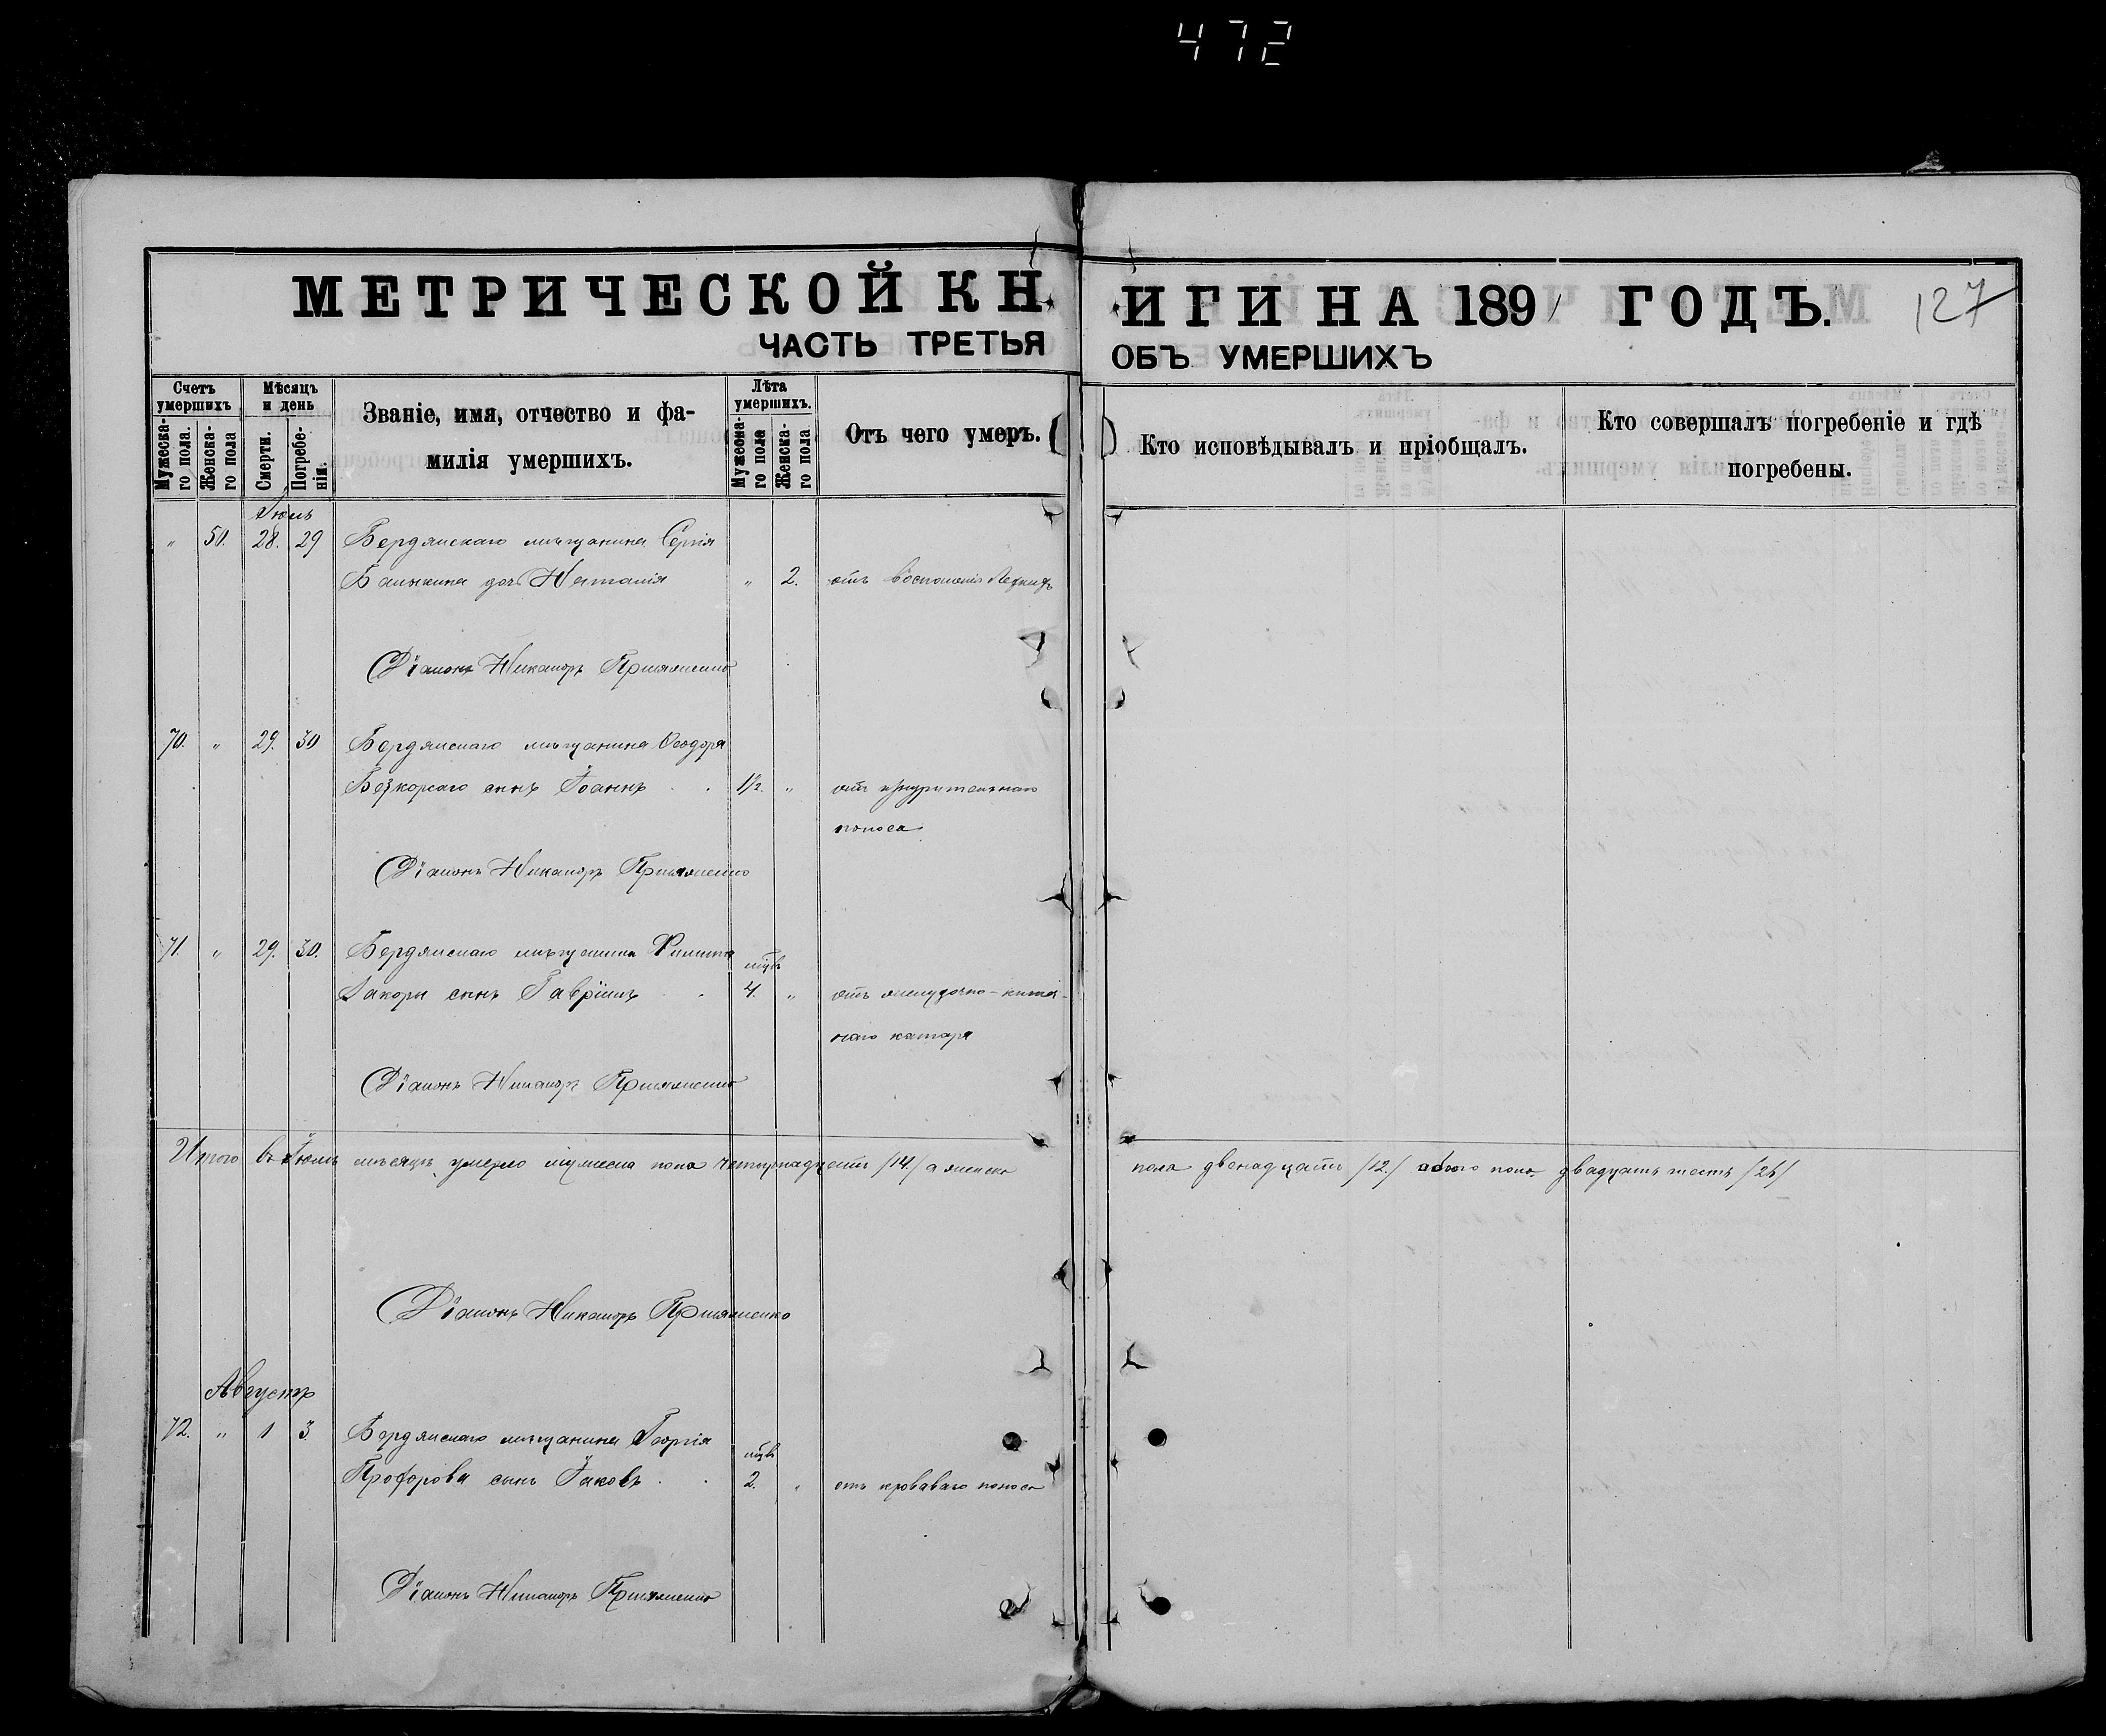 472
МЕТРИЧЕСКОЙ КНИГИ НА 1891 ГОДЪ.
127
ЧАСТЬ ТРЕТЬЯ ОБЪ УМЕРШИХЪ
Счетъ умершихъ
Мужеска-го пола.
Женска-го пола
Мѣсяцъ и день
Смерти.
Погребе-нія.
Званіе, имя, отчество и фа-
милія умершихъ.
Лѣта умершихъ.
Мужеска-го пола
Женска-го пола.
Отъ чего умеръ.
Кто исповѣдывалъ и пріобщалъ.
Кто совершалъ погребеніе и гдѣ
погребены.
Іюль
" 50. 28. 29 Бердянскаго мѣщанина Сергія
дочь Наталія " 2. отъ воспаленія легкихъ
Діаконъ Никаноръ
70. " 29. 30 Бердянскаго мѣщанина Ѳеодора
Безкорсаго сынъ Іоаннъ 1½. " отъ изнурительнаго
поноса
Діаконъ Никаноръ
71. " 29. 30. Бердянскаго мѣщанина Филиппа
мцв
сынъ Гавріилъ 4. " отъ желудочно-кишеч-
наго катара
Діаконъ Никаноръ
Итого въ Іюлѣ мѣсяцѣ умерло мужеска пола четырнадцать /14/ а женска пола двенадцать /12/ обоего пола двадцать шесть /26/
Діаконъ Никаноръ
Августъ
72. " 1 3. Бердянскаго мѣщанина Георгія
мцв
Прохорова сынъ Іаковъ 2. " отъ кроваваго поноса
Діаконъ Никаноръ